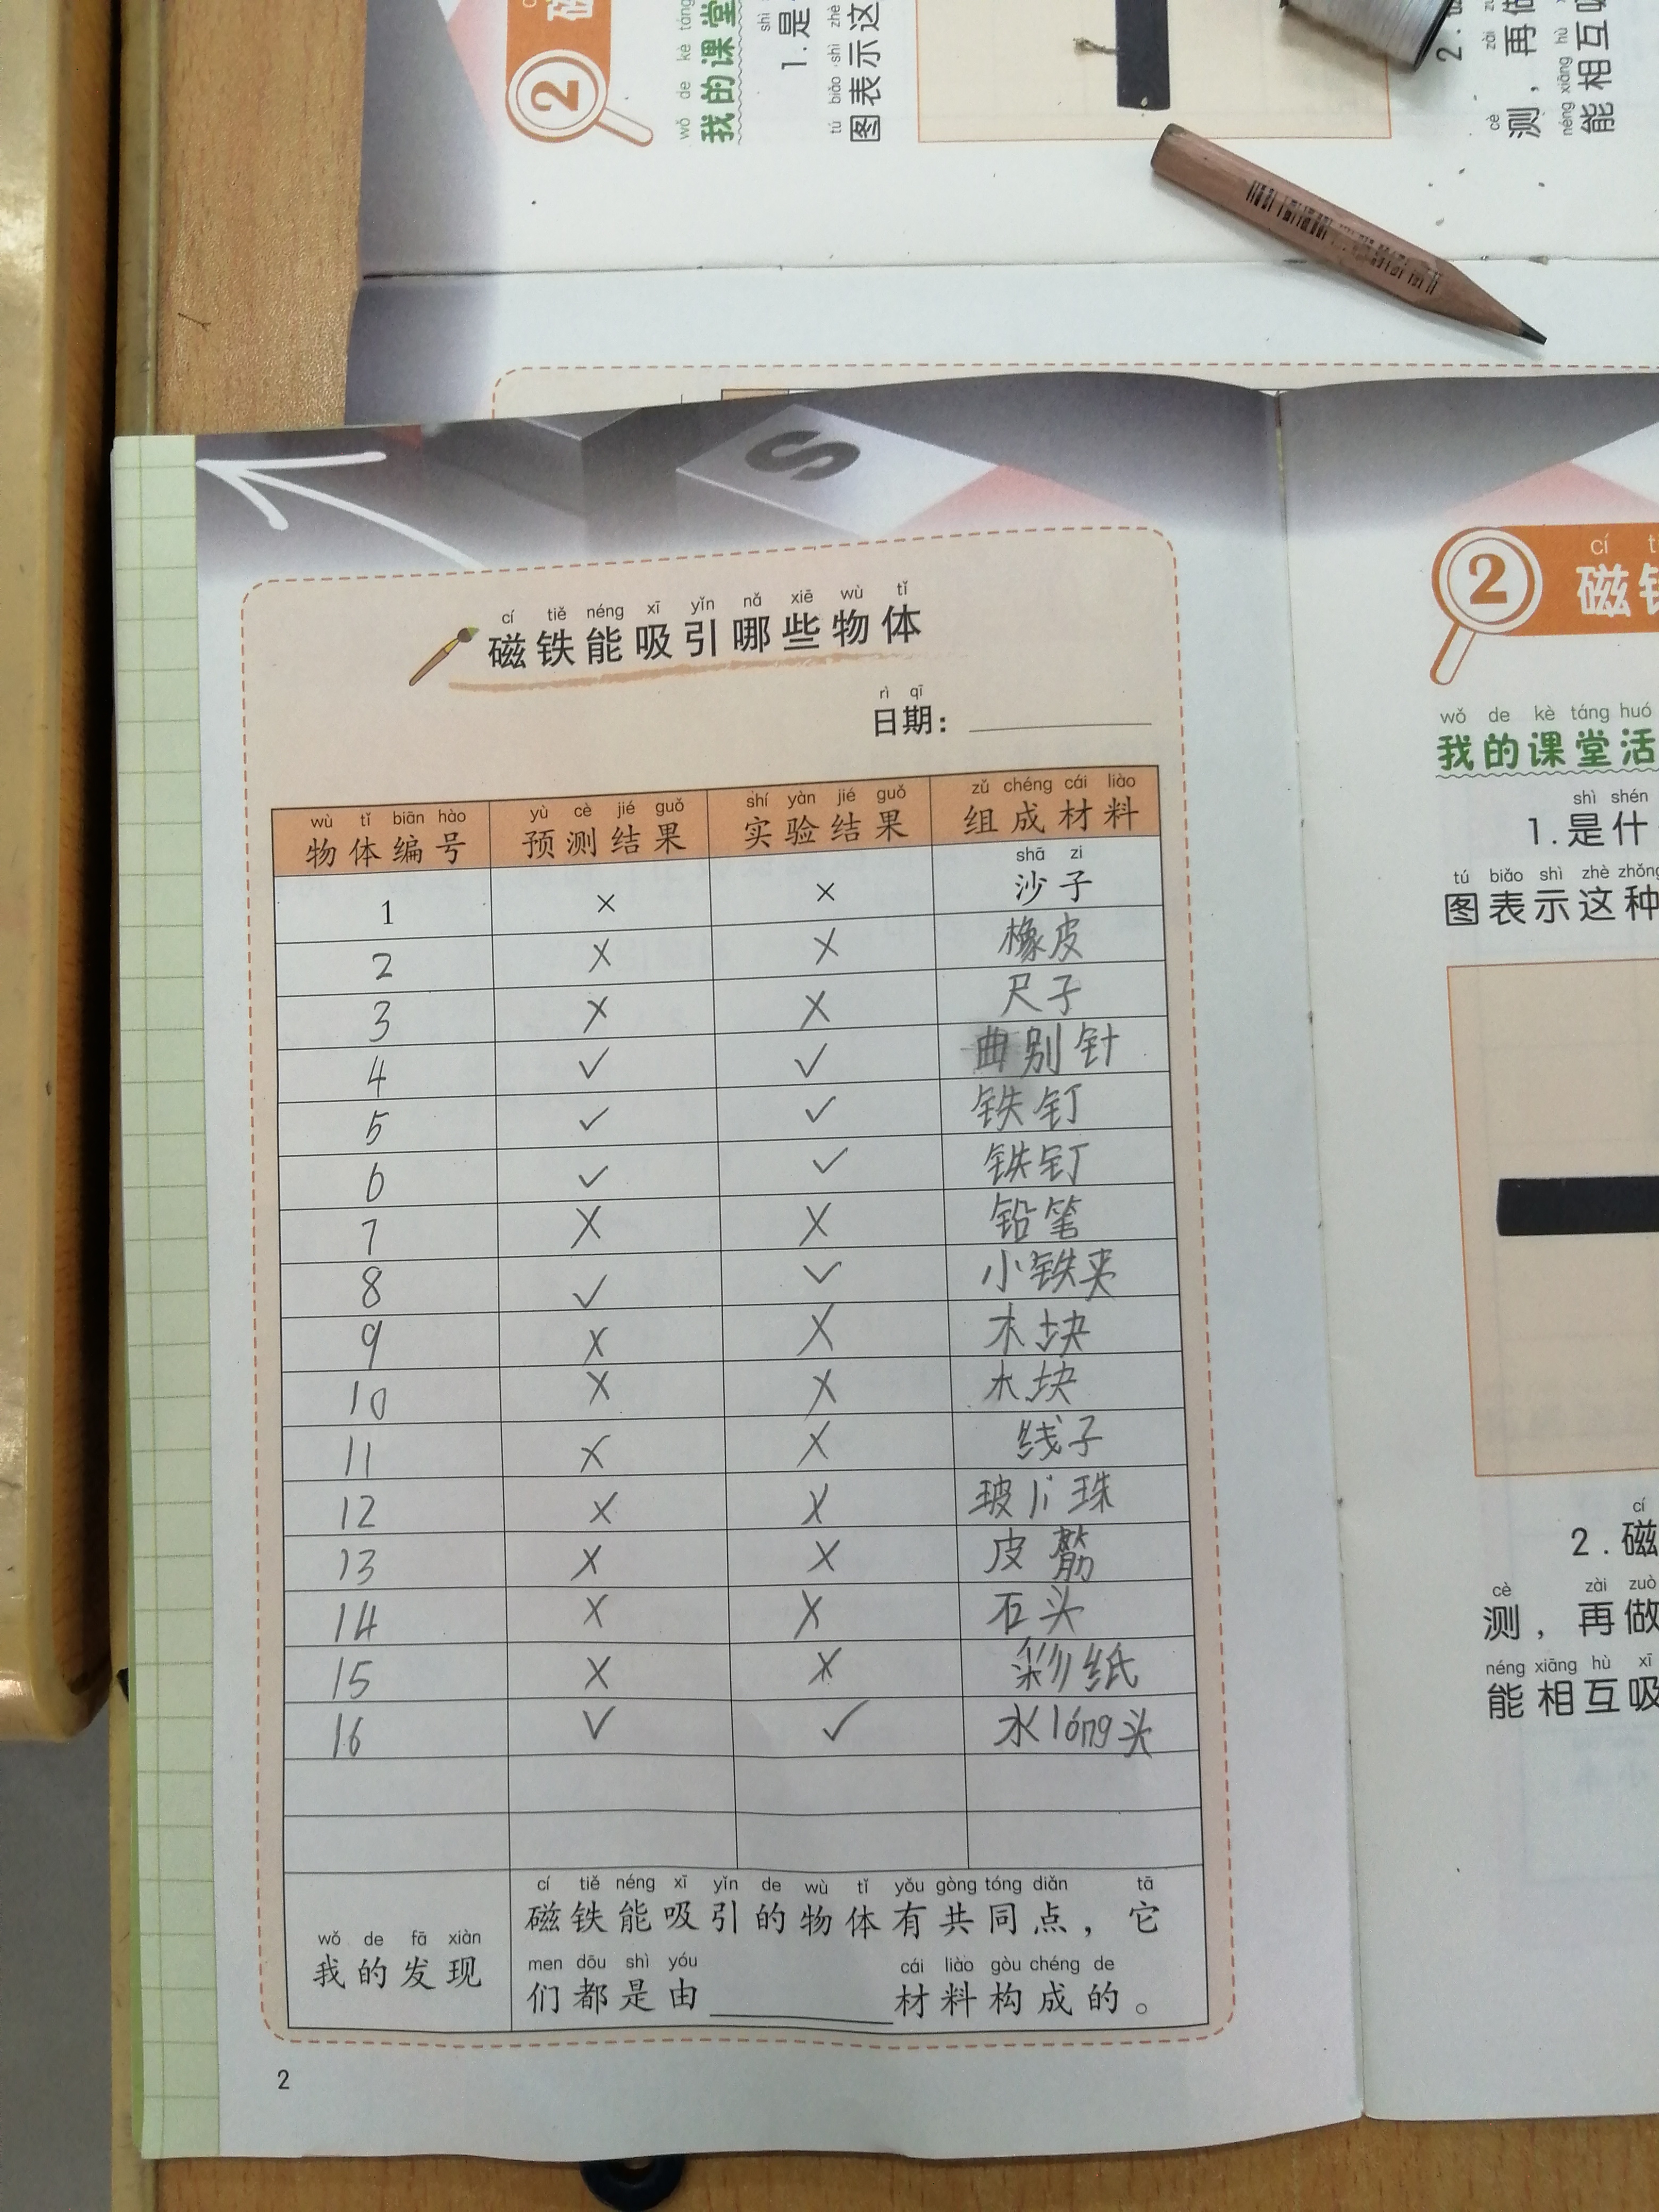 2
wǒ de kè táng
我的课堂
shì
1.是
tú biǎo shì zhè
图表示这
cè zài
测，再做
néng xiāng hù
能相互吸
S
cí tiě néng xī yǐn nǎ xiē wù tǐ
磁铁能吸引哪些物体
rì qī
日期：
wù tǐ biān hào yù cè jié guǒ shí yàn jié guǒ zǔ chéng cái liào
物体编号 预测结果 实验结果 组成材料
shā zi
1 × × 沙子
2 × × 橡皮
3 × × 尺子
4 ✓ ✓ 曲别针
5 ✓ ✓ 铁钉
6 ✓ ✓ 铁钉
7 × × 铅笔
8 ✓ ✓ 小铁夹
9 × × 木块
10 × × 木块
11 × × 线子
12 × × 玻li珠
13 × × 皮筋
14 × × 石头
15 × × 彩纸
16 ✓ ✓ 水lóng头
cí tiě néng xī yǐn de wù tǐ yǒu gòng tóng diǎn tā
磁铁能吸引的物体有共同点，它
wǒ de fā xiàn
我的发现
men dōu shì yóu cái liào gòu chéng de
们都是由 材料构成的。
2
2
cí
磁
wǒ de kè táng huó
我的课堂活
shì shén
1.是什
tú biǎo shì zhè zhǒng
图表示这种
cí
2.磁
cè zài zuò
测，再做
néng xiāng hù xī
能相互吸